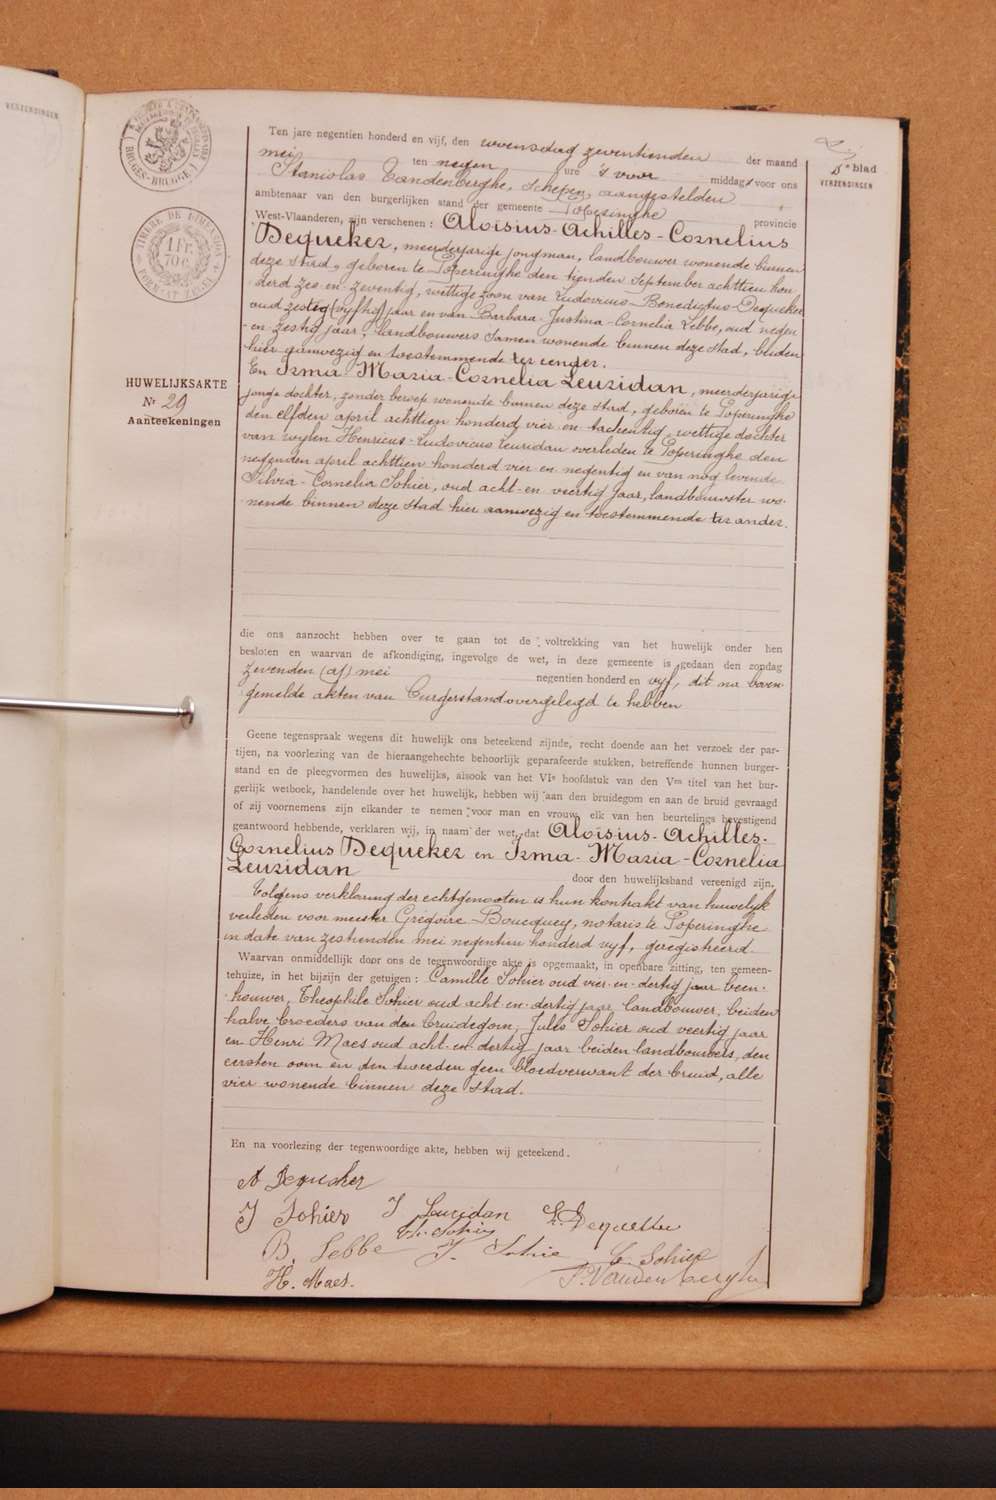 VERZENDINGEN
BRUGES-BRUGGE
TIMBRE DE DIMENSION
1 Fr.
70 c.
FORMAAT ZEGEL
5e blad
VERZENDINGEN
HUWELIJKSAKTE
Nr 29
Aanteekeningen
Ten jare negentien honderd en vijf, den woensdag zeventienden der maand
mei ten negen ure 's voor middags voor ons
Stanislas Vandenberghe, schepen, aangestelden
ambtenaar van den burgerlijken stand der gemeente Poperinghe provincie
West-Vlaanderen, zijn verschenen : Aloïsius-Achilles-Cornelius
Dequeker, meerderjarige jongman, landbouwer wonende binnen
deze stad, geboren te Poperinghe den tienden September achttien hon-
derd zes-en-zeventig, wettige zoon van Ludovicus-Benedictus-Dequeker
oud zestig (vyftig) jaar en van Barbara-Justina-Cornelia Lebbe, oud negen
-en zestig jaar, landbouwers samen wonende binnen deze stad, beiden
hier aanwezig en toestemmende ter eender.
En Irma-Maria-Cornelia Leuridan, meerderjarige
jonge dochter, zonder beroep wonende binnen deze stad, geboren te Poperinghe
den elfden april achttien honderd vier en tachentig, wettige dochter
van wylen Henricus-Ludovicus Leuridan overleden te Poperinghe den
negenden april achttien honderd vier en negentig en van nog levende
Silvia-Cornelia Sohier, oud acht-en veertig jaar, landbouwster wo-
nende binnen deze stad hier aanwezig en toestemmende ter ander.
die ons aanzocht hebben over te gaan tot de voltrekking van het huwelijk onder hen
besloten en waarvan de afkondiging, ingevolge de wet, in deze gemeente is gedaan den zondag
zevenden (af) mei negentien honderd en vyf, dit na boven-
gemelde akten van burgerstand overgelegd te hebben
Geene tegenspraak wegens dit huwelijk ons beteekend zijnde, recht doende aan het verzoek der par-
tijen, na voorlezing van de hieraangehechte behoorlijk geparafeerde stukken, betreffende hunnen burger-
stand en de pleegvormen des huwelijks, alsook van het VIe hoofdstuk van den Ven titel van het bur-
gerlijk wetboek, handelende over het huwelijk, hebben wij aan den bruidegom en aan de bruid gevraagd
of zij voornemens zijn elkander te nemen voor man en vrouw, elk van hen beurtelings bevestigend
geantwoord hebbende, verklaren wij, in naam der wet, dat Aloïsius-Achilles-
Cornelius Dequeker en Irma-Maria-Cornelia
Leuridan door den huwelijksband vereenigd zijn,
Volgens verklaring der echtgenooten is hun kontrakt van huwelyk
verleden voor meester Gregoire Boucquey, notaris te Poperinghe
in date van zestienden mei negentien honderd vyf, geregistreerd.
Waarvan onmiddellijk door ons de tegenwoordige akte is opgemaakt, in openbare zitting, ten gemeen-
tehuize, in het bijzijn der getuigen : Camille Sohier oud vier-en-dertig jaar been-
houwer, Theophile Sohier oud acht-en-dertig jaar, landbouwer, beiden
halve broeders van den bruidegom, Jules Sohier oud veertig jaar
en Henri Maes oud acht-en-dertig jaar beiden landbouwers, den
eersten oom en den tweeden geen bloedverwant der bruid, alle
vier wonende binnen deze stad.
En na voorlezing der tegenwoordige akte, hebben wij geteekend.
A Dequeker
J Sohier I Leuridan L. Dequeker
Th. Sohier
B. Lebbe J. Sohier C. Sohier
H. Maes. S. Vandenberghe